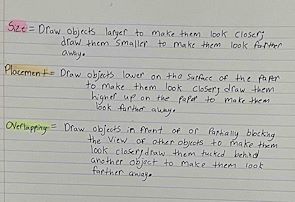 Size = Draw objects larger to make them look closer;
draw them smaller to make them look farther
away.
Placement = Draw objects lower on the surface of the paper
to make them look closer; draw them
higher up on the paper to make them
look farther away.
Overlapping = Draw objects in front of or partially blocking
the view of other objects to make them
look closer; draw them tucked behind
another object to make them look
farther away.